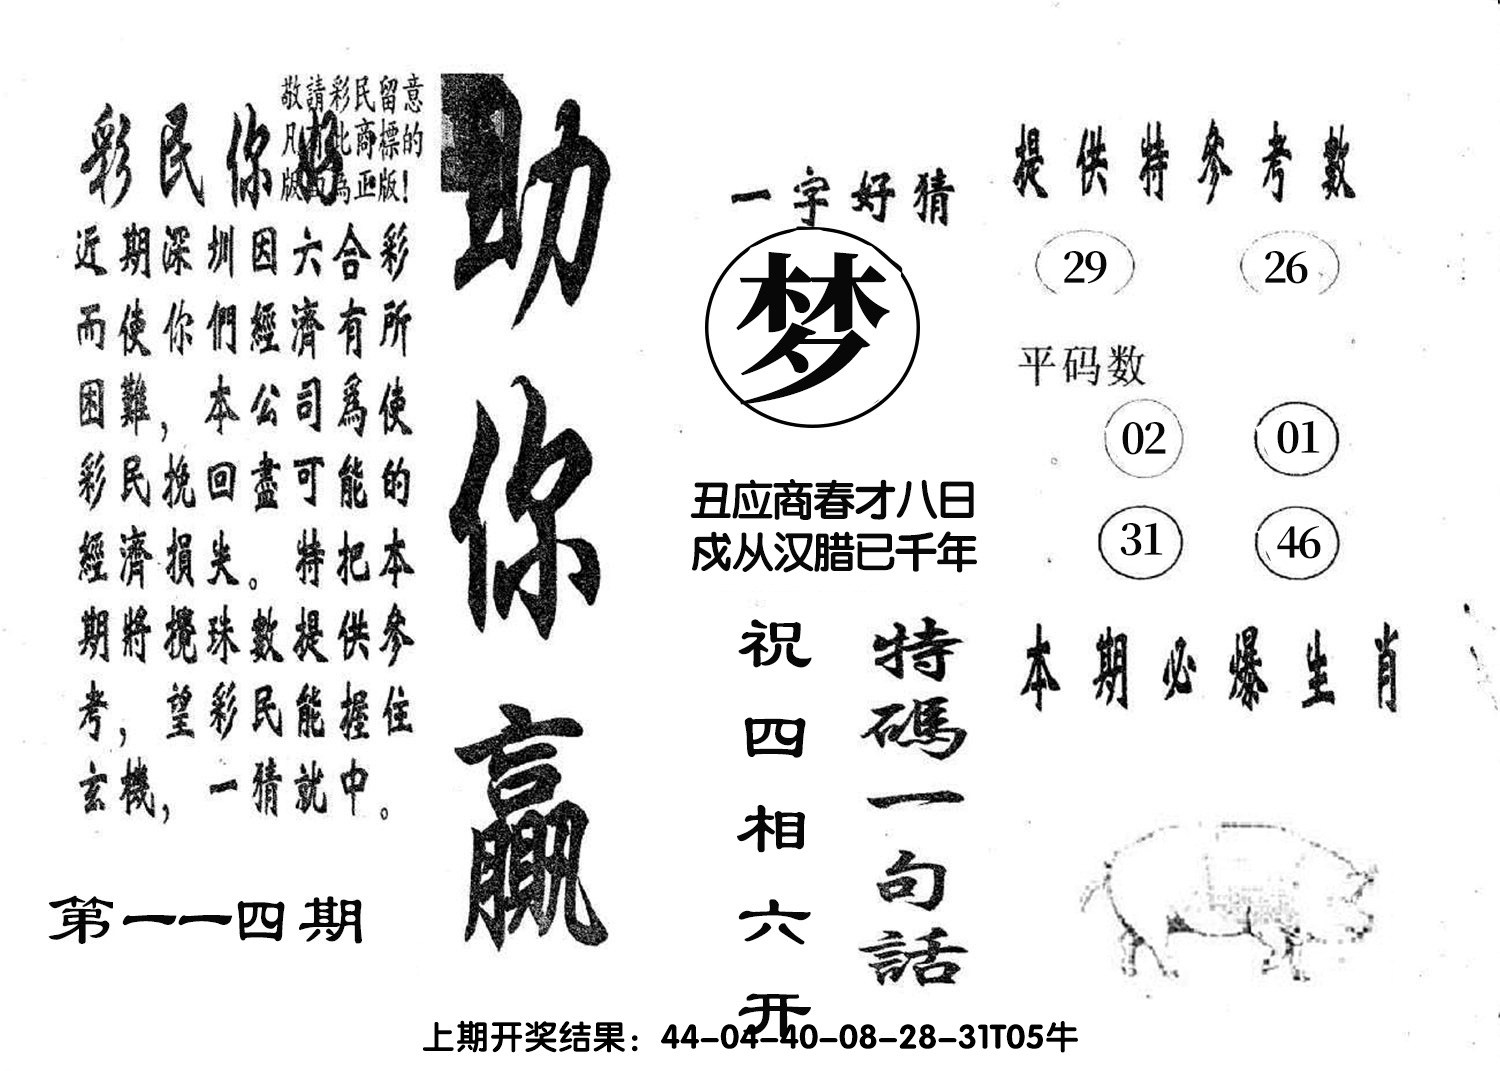 敬請彩民留意
凡有此商標的
版面為正版！
彩民你好
近期深圳因六合彩
而使你們經濟有所
困難，本公司爲使
彩民挽回盡可能的
經濟損失。特把本
期將攪珠數提供參
考，望彩民能握住
玄機，一猜就中。
第一一四期
助你贏
一字好猜
梦
丑应商春才八日
戍从汉腊已千年
特碼一句話
祝四相六开
提供特參考數
29 26
平码数
02 01
31 46
本期必爆生肖
上期开奖结果：44-04-40-08-28-31T05牛